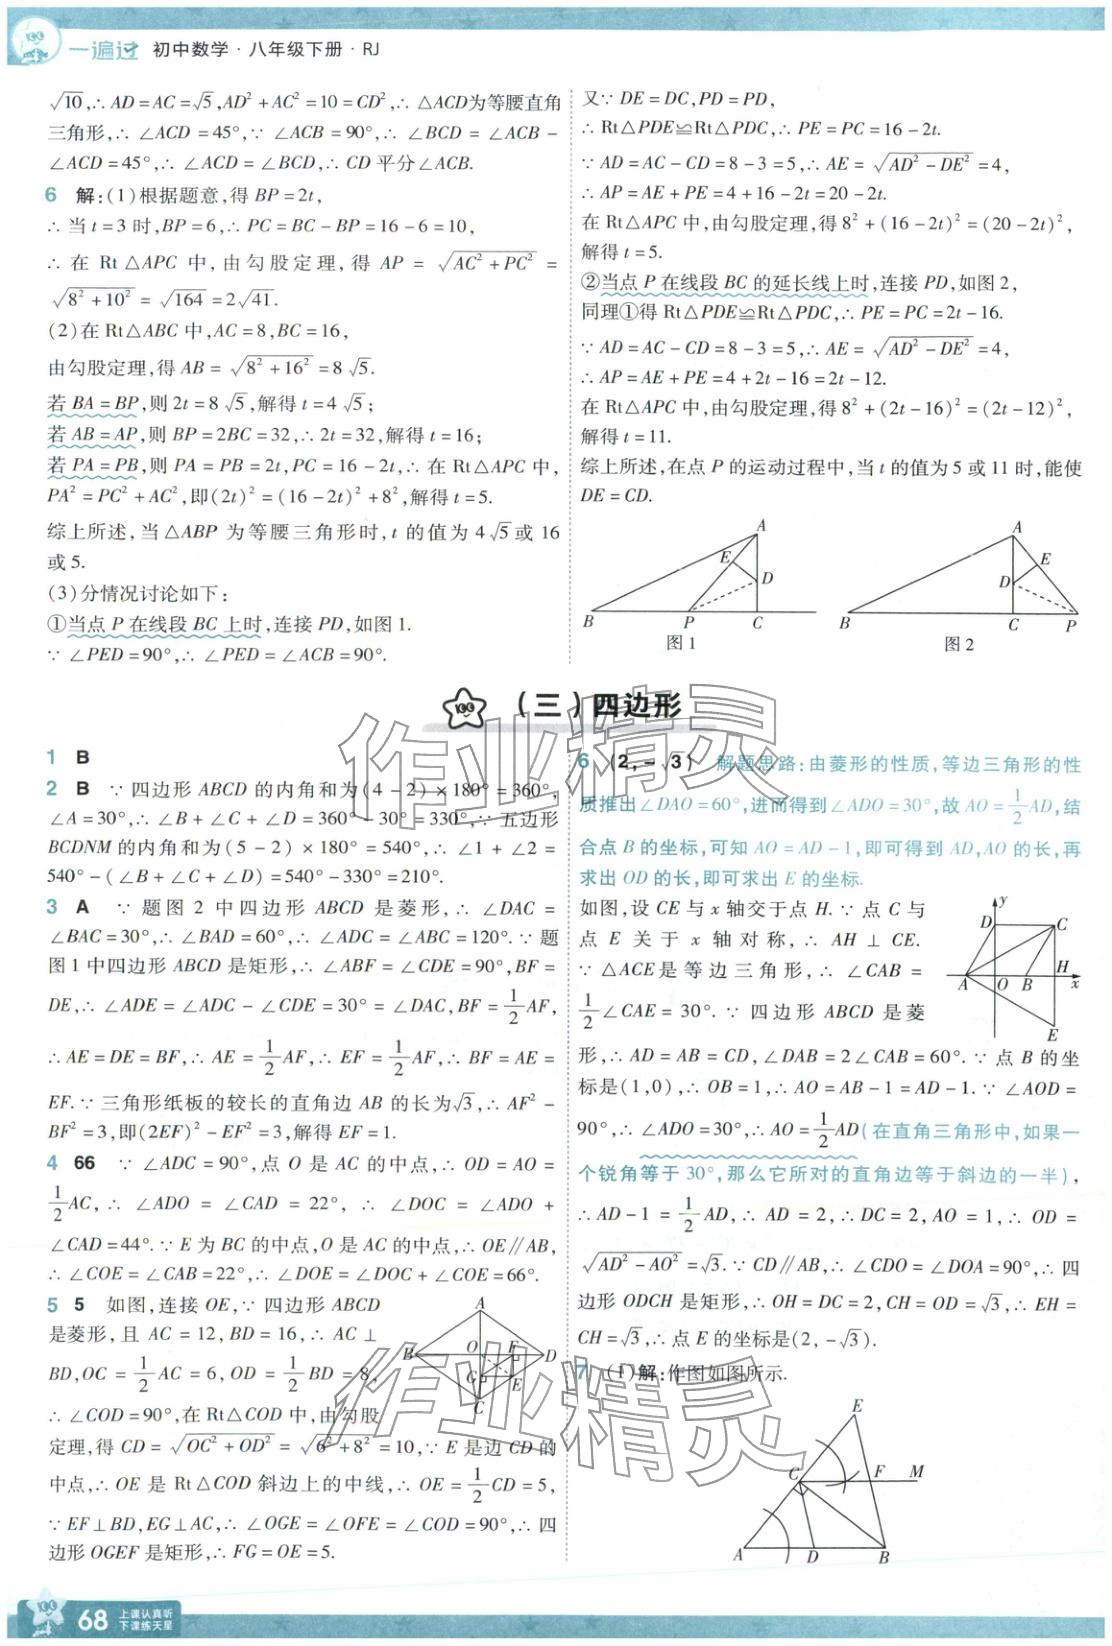 一遍过 初中数学·八年级下册·RJ
√10,∴ AD=AC=√5,AD²+AC²=10=CD²,∴ △ACD为等腰直角
三角形,∴ ∠ACD=45°,∵ ∠ACB=90°,∴ ∠BCD=∠ACB-
∠ACD=45°,∴ ∠ACD=∠BCD,∴ CD平分∠ACB.
6 解:(1)根据题意,得BP=2t,
∴ 当t=3时,BP=6,∴ PC=BC-BP=16-6=10,
∴ 在Rt△APC中,由勾股定理,得AP=√(AC²+PC²)=
√(8²+10²)=√164=2√41.
(2)在Rt△ABC中,AC=8,BC=16,
由勾股定理,得AB=√(8²+16²)=8√5.
若BA=BP,则2t=8√5,解得t=4√5;
若AB=AP,则BP=2BC=32,∴ 2t=32,解得t=16;
若PA=PB,则PA=PB=2t,PC=16-2t,∴ 在Rt△APC中,
PA²=PC²+AC²,即(2t)²=(16-2t)²+8²,解得t=5.
综上所述,当△ABP为等腰三角形时,t的值为4√5或16
或5.
(3)分情况讨论如下:
①当点P在线段BC上时,连接PD,如图1.
∵ ∠PED=90°,∴ ∠PED=∠ACB=90°.
又∵ DE=DC,PD=PD,
∴ Rt△PDE≌Rt△PDC,∴ PE=PC=16-2t.
∵ AD=AC-CD=8-3=5,∴ AE=√(AD²-DE²)=4,
∴ AP=AE+PE=4+16-2t=20-2t.
在Rt△APC中,由勾股定理,得8²+(16-2t)²=(20-2t)²,
解得t=5.
②当点P在线段BC的延长线上时,连接PD,如图2,
同理①得Rt△PDE≌Rt△PDC,∴ PE=PC=2t-16.
∵ AD=AC-CD=8-3=5,∴ AE=√(AD²-DE²)=4,
∴ AP=AE+PE=4+2t-16=2t-12.
在Rt△APC中,由勾股定理,得8²+(2t-16)²=(2t-12)²,
解得t=11.
综上所述,在点P的运动过程中,当t的值为5或11时,能使
DE=CD.
A E D B P C 图1
A E D B C P 图2
(三)四边形
1 B
2 B ∵ 四边形ABCD的内角和为(4-2)×180°=360°,
∠A=30°,∴ ∠B+∠C+∠D=360°-30°=330°,∵ 五边形
BCDNM的内角和为(5-2)×180°=540°,∴ ∠1+∠2=
540°-(∠B+∠C+∠D)=540°-330°=210°.
3 A ∵ 题图2中四边形ABCD是菱形,∴ ∠DAC=
∠BAC=30°,∴ ∠BAD=60°,∴ ∠ADC=∠ABC=120°.∵ 题
图1中四边形ABCD是矩形,∴ ∠ABF=∠CDE=90°,BF=
DE,∴ ∠ADE=∠ADC-∠CDE=30°=∠DAC,BF=1/2AF,
∴ AE=DE=BF,∴ AE=1/2AF,∴ EF=1/2AF,∴ BF=AE=
EF.∵ 三角形纸板的较长的直角边AB的长为√3,∴ AF²-
BF²=3,即(2EF)²-EF²=3,解得EF=1.
4 66 ∵ ∠ADC=90°,点O是AC的中点,∴ OD=AO=
1/2AC,∴ ∠ADO=∠CAD=22°,∴ ∠DOC=∠ADO+
∠CAD=44°.∵ E为BC的中点,O是AC的中点,∴ OE∥AB,
∴ ∠COE=∠CAB=22°,∴ ∠DOE=∠DOC+∠COE=66°.
5 5 如图,连接OE,∵ 四边形ABCD
是菱形,且AC=12,BD=16,∴ AC⊥
BD,OC=1/2AC=6,OD=1/2BD=8,
∴ ∠COD=90°,在Rt△COD中,由勾股
定理,得CD=√(OC²+OD²)=√(6²+8²)=10,∵ E是边CD的
中点,∴ OE是Rt△COD斜边上的中线,∴ OE=1/2CD=5,
∵ EF⊥BD,EG⊥AC,∴ ∠OGE=∠OFE=∠COD=90°,∴ 四
边形OGEF是矩形,∴ FG=OE=5.
A B O F D G E C
6 (2,-√3) 解题思路:由菱形的性质,等边三角形的性
质推出∠DAO=60°,进而得到∠ADO=30°,故AO=1/2AD,结
合点B的坐标,可知AO=AD-1,即可得到AD,AO的长,再
求出OD的长,即可求出E的坐标.
如图,设CE与x轴交于点H.∵ 点C与
点E关于x轴对称,∴ AH⊥CE.
∵ △ACE是等边三角形,∴ ∠CAB=
1/2∠CAE=30°.∵ 四边形ABCD是菱
形,∴ AD=AB=CD,∠DAB=2∠CAB=60°.∵ 点B的坐
标是(1,0),∴ OB=1,∴ AO=AB-1=AD-1.∵ ∠AOD=
90°,∴ ∠ADO=30°,∴ AO=1/2AD(在直角三角形中,如果一
个锐角等于30°,那么它所对的直角边等于斜边的一半),
∴ AD-1=1/2AD,∴ AD=2,∴ DC=2,AO=1,∴ OD=
√(AD²-AO²)=√3.∵ CD∥AB,∴ ∠CDO=∠DOA=90°,∴ 四
边形ODCH是矩形,∴ OH=DC=2,CH=OD=√3,∴ EH=
CH=√3,∴ 点E的坐标是(2,-√3).
y D C A O B H x E
7 (1)解:作图如图所示.
E C F M A D B
作业精灵
作业精灵
68 上课认真听
下课练天星